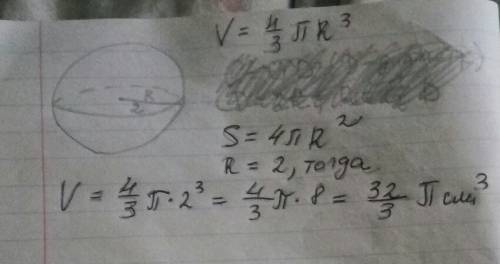 V = 4/3 πR³
R
2
S = 4πR²
R = 2, тогда
V = 4/3 π·2³ = 4/3 π·8 = 32/3 π см³